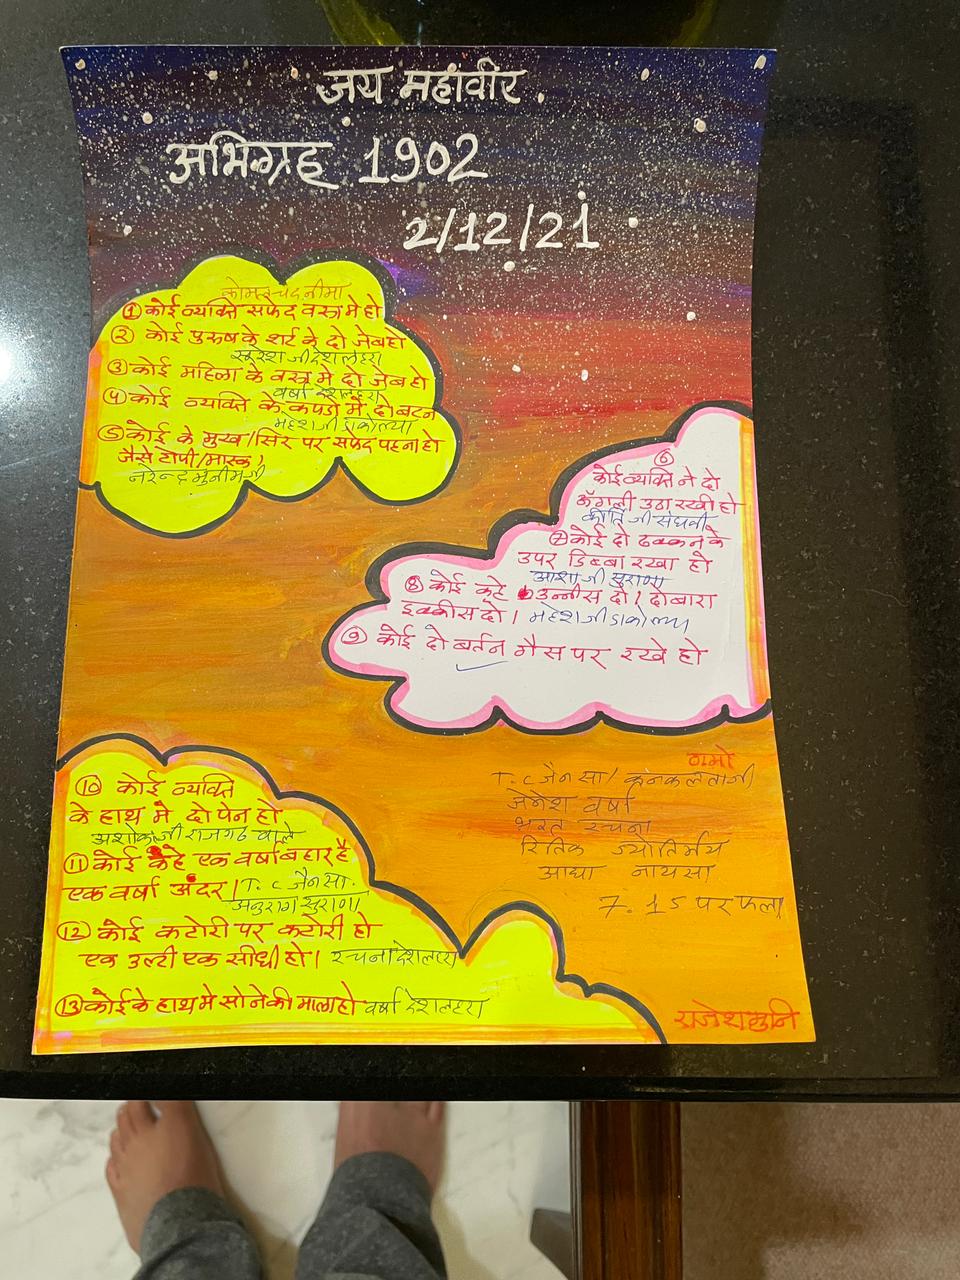 जय महावीर
अभिग्रह 1902
2/12/21
① कोई व्यक्ति सफेद वस्त्र मे हो
② कोई पुरुष के शर्ट के दो जेब हो
सुरेश जी देशलहरा
③ कोई महिला के वस्त्र मे दो जेब हो
वर्षा देशलहरा
④ कोई व्यक्ति के कपडो मे दो बटन
महेश जी डाकोल्या
⑤ कोई के मुख/सिर पर सफेद पहना हो
जैसे टोपी/मास्क)
नरेन्द्र मुनीमजी
⑥
कोई व्यक्ति ने दो
ऊँगली उठा रखी हो
कीर्ति जी संघवी
⑦ कोई दो ढक्कन के
उपर डिब्बा रखा हो
आशा जी सुराणा
⑧ कोई कहे उन्नीस दो / दोबारा
इक्कीस दो / महेश जी डाकोल्या
⑨ कोई दो बर्तन गैस पर रखे हो
⑩ कोई व्यक्ति
के हाथ मे दो पेन हो
अशोक जी राजगढ वाले
⑪ कोई कहे एक वर्षा बहार है
एक वर्षा अंदर / T. C जैन सा.
अनुराग सुराणा
⑫ कोई कटोरी पर कटोरी हो
एक उल्टी एक सीधी हो / रचना देशलहरा
⑬ कोई के हाथ मे सोने की माला हो वर्षा देशलहरा
T. C जैन सा / कनकलताजी
जेनेश वर्षा
भरत रचना
रितिक ज्योतिर्मय
आद्या नायसा
7. 15 पर फला
राजेशमुनि